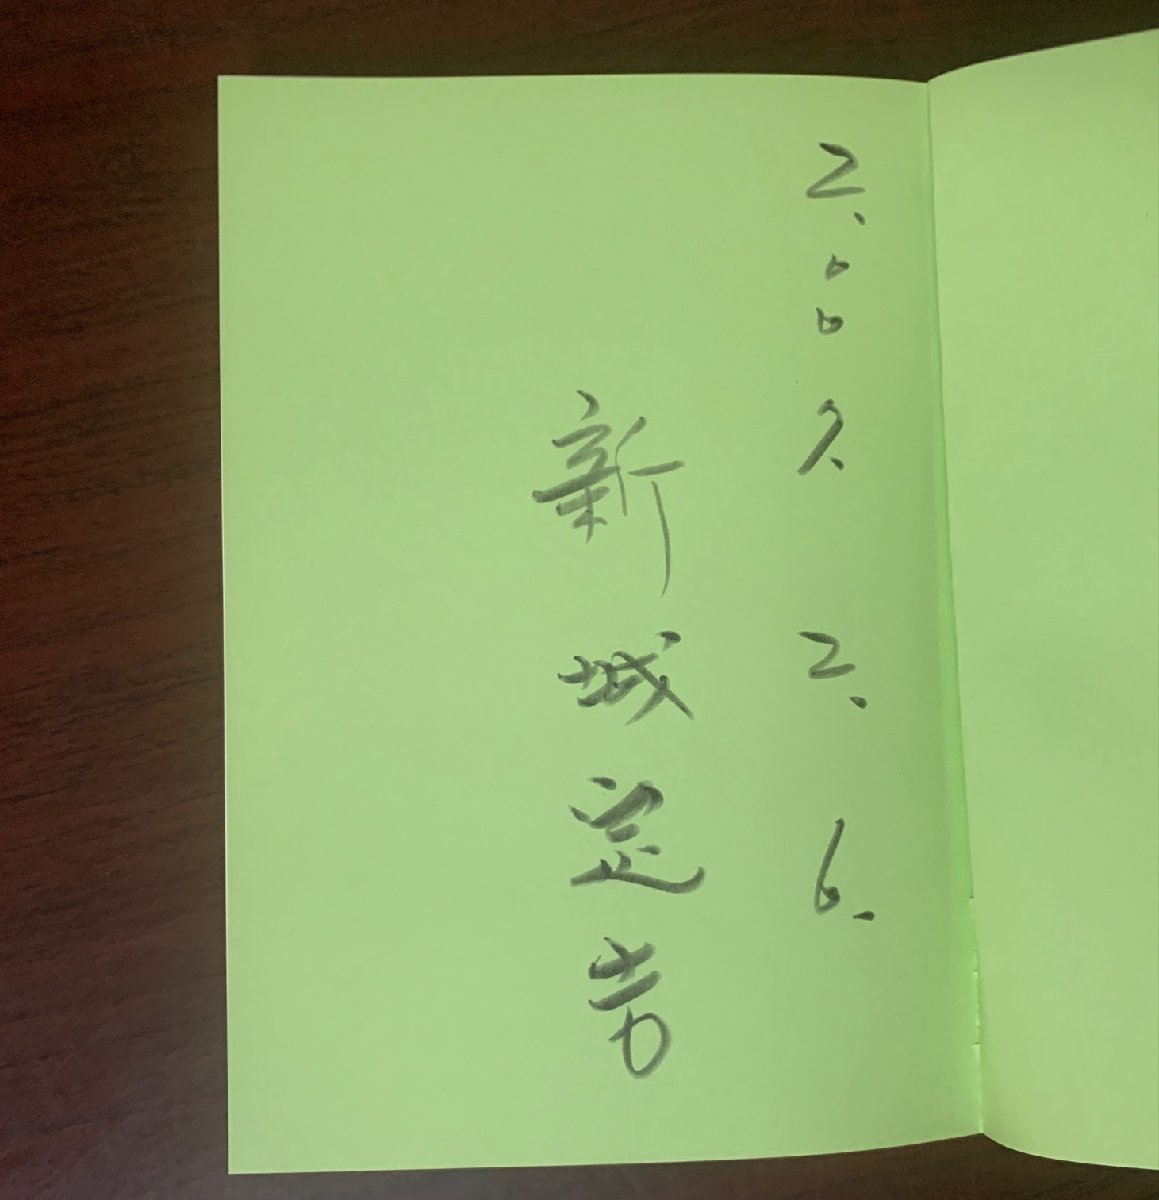 2.007.2.6.
新城定吉